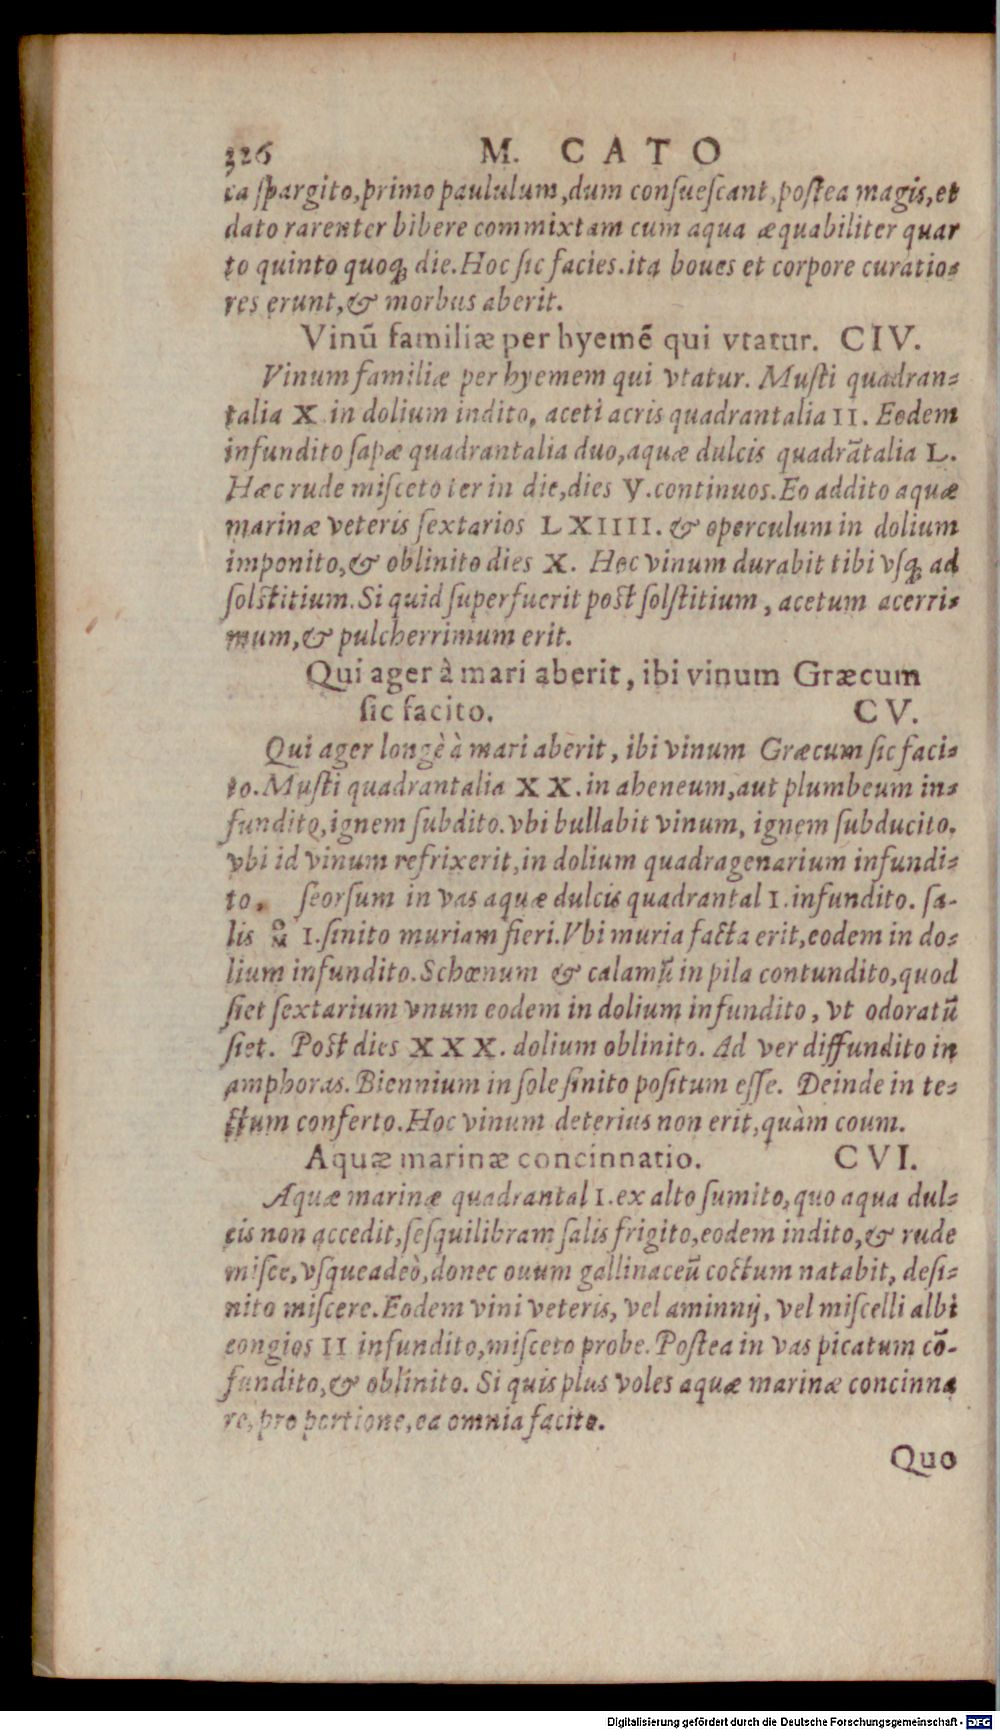 326 M. CATO
ca ſpargito, primo paululum, dum conſueſcant, poſtea magis, et
dato rarenter bibere commixtam cum aqua æquabiliter quar
to quinto quoq; die. Hoc ſic facies. ita boues et corpore curatio-
res erunt, & morbus aberit.
Vinū familiæ per hyemē qui vtatur. CIV.
Vinum familiæ per hyemem qui vtatur. Muſti quadran-
talia X in dolium indito, aceti acris quadrantalia II. Eodem
infundito ſapæ quadrantalia duo, aquæ dulcis quadrātalia L.
Hæc rude miſceto ter in die, dies V. continuos. Eo addito aquæ
marinæ veteris ſextarios LXIIII. & operculum in dolium
imponito, & oblinito dies X. Hoc vinum durabit tibi vſq; ad
ſolſtitium. Si quid ſuperfuerit poſt ſolſtitium, acetum acerri-
mum, & pulcherrimum erit.
Qui ager à mari aberit, ibi vinum Græcum
ſic facito. CV.
Qui ager longè à mari aberit, ibi vinum Græcum ſic faci-
to. Muſti quadrantalia XX. in aheneum, aut plumbeum in-
fundito, ignem ſubdito. vbi bullabit vinum, ignem ſubducito.
vbi id vinum refrixerit, in dolium quadragenarium infundi-
to. ſeorſum in vas aquæ dulcis quadrantal I. infundito. ſa-
lis I. ſinito muriam fieri. Vbi muria facta erit, eodem in do-
lium infundito. Schœnum & calamū in pila contundito, quod
ſiet ſextarium vnum eodem in dolium infundito, vt odoratū
ſiet. Poſt dies XXX. dolium oblinito. Ad ver diffundito in
amphoras. Biennium in ſole ſinito poſitum eſſe. Deinde in te-
ctum conferto. Hoc vinum deterius non erit, quàm coum.
Aquæ marinæ concinnatio. CVI.
Aquæ marinæ quadrantal I. ex alto ſumito, quo aqua dul-
cis non accedit, ſeſquilibram ſalis frigito, eodem indito, & rude
miſce, vſqueadeò, donec ouum gallinaceū coctum natabit, deſi-
nito miſcere. Eodem vini veteris, vel aminnij, vel miſcelli albi
congios II infundito, miſceto probe. Poſtea in vas picatum cō-
fundito, & oblinito. Si quis plus voles aquæ marinæ concinna
re, pro portione, ea omnia facito.
Quo
Digitalisierung gefördert durch die Deutsche Forschungsgemeinschaft - DFG